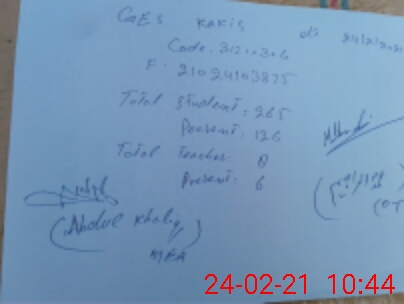 GGES Kakis dt 24/2/2021
Code. 31210306
F. 21024103875
Total student: 265
Present: 126
Total teacher: 8
Present: 6
(Abdul Khaliq)
MEA
24-02-21 10:44